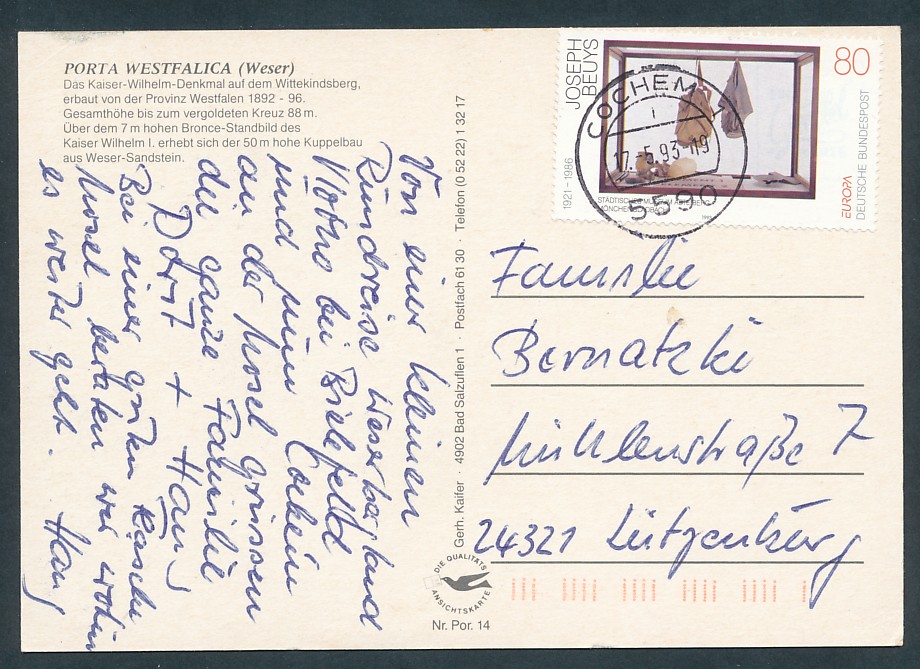 PORTA WESTFALICA (Weser)
Das Kaiser-Wilhelm-Denkmal auf dem Wittekindsberg,
erbaut von der Provinz Westfalen 1892 - 96.
Gesamthöhe bis zum vergoldeten Kreuz 88 m.
Über dem 7 m hohen Bronce-Standbild des
Kaiser Wilhelm I. erhebt sich der 50 m hohe Kuppelbau
aus Weser-Sandstein.
Von einer kleinen
Rundreise Weserbergland
bei Bielefeld
und nun Cochem
an der Mosel grüssen
die ganze Familie
Dorst + Hans
Bei einer guten Flasche
Mosel beraten wir wohin
es weiter geht. Hans
Gerh. Kaifer · 4902 Bad Salzuflen 1 · Postfach 61 30 · Telefon (0 52 22) 1 32 17
DIE QUALITÄTS
ANSICHTSKARTE
Nr. Por. 14
JOSEPH
BEUYS
1921–1986
80
STÄDTISCHES MUSEUM ABTEIBERG
MÖNCHENGLADBACH
1993
EUROPA
DEUTSCHE BUNDESPOST
COCHEM 1
i
17.-5.93-19
5590
Familie
Bernatzki
Mühlenstraße 7
24321 Lütjenburg